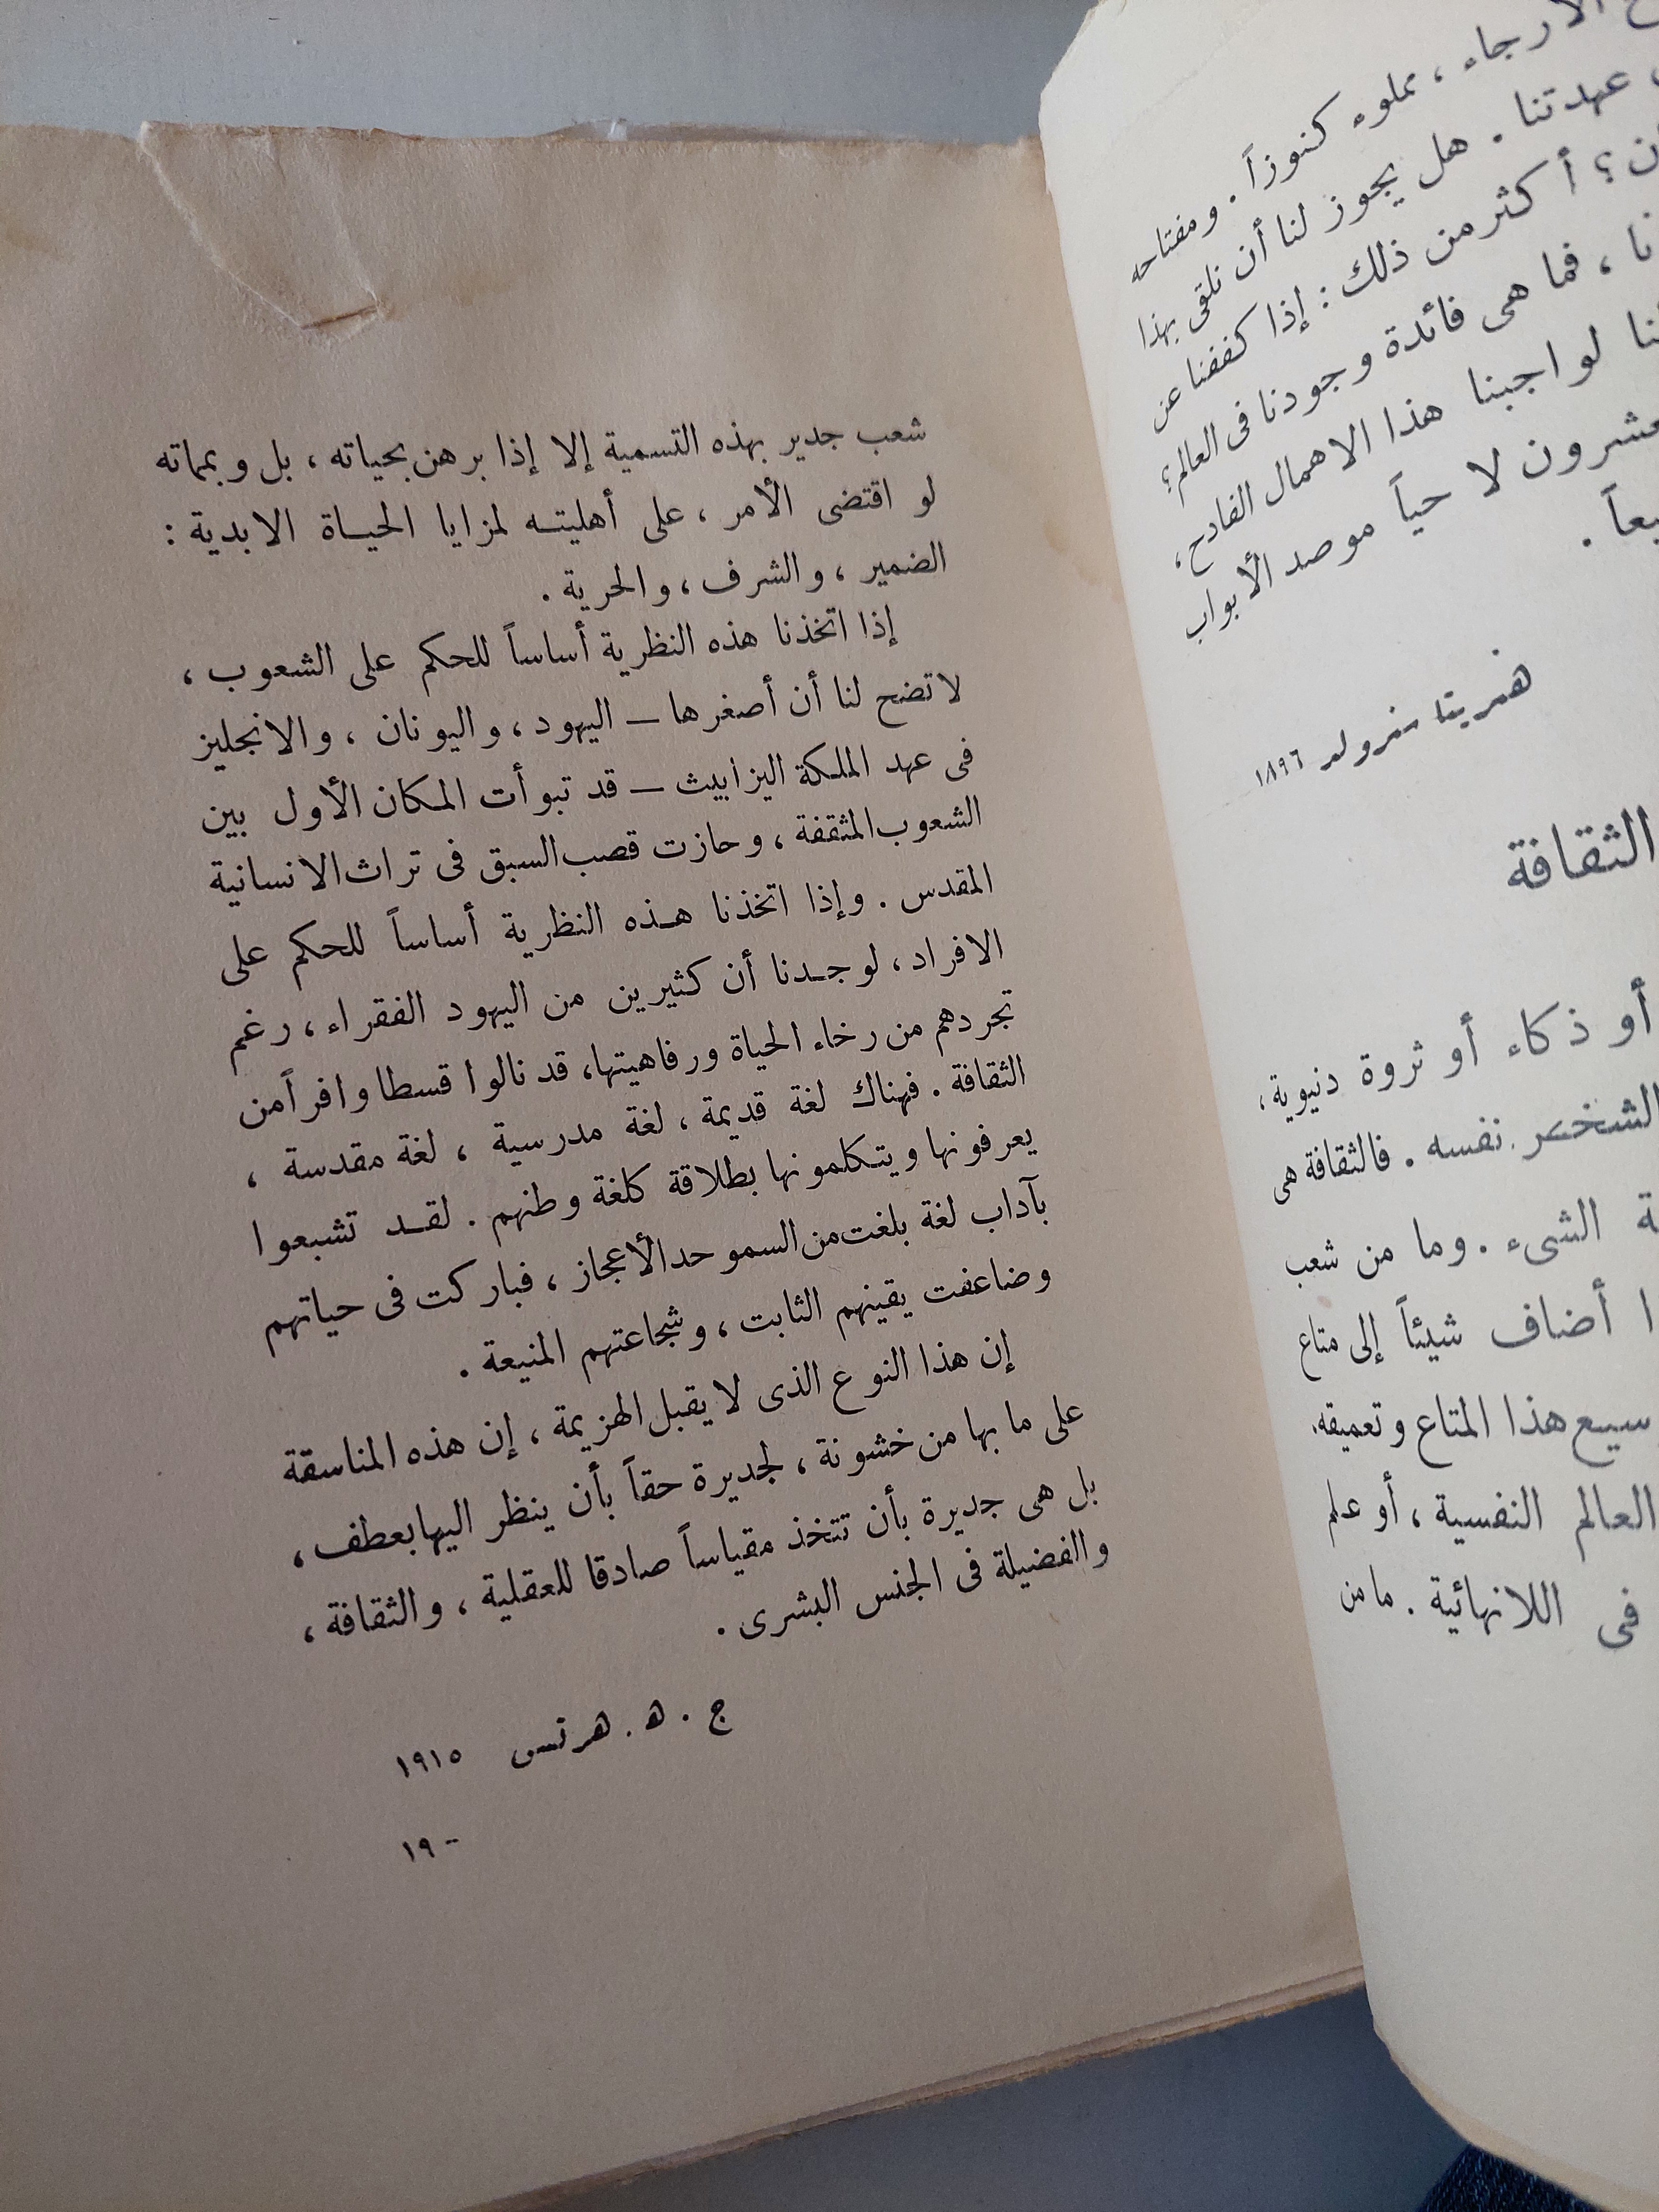 الأرجاء ، مملوء كنوزاً . ومفتاحه
عهدتنا . هل يجوز لنا أن نلقى بهذا
؟ أكثر من ذلك : إذا كففنا عن
، فما هى فائدة وجودنا فى العالم ؟
لو اجبنا هذا الاهمال الفادح ،
لا حياً موصد الأبواب
هنريتا سزولد ١٨٩٦
الثقافة
أو ذكاء أو ثروة دنيوية ،
الشخص نفسه . فالثقافة هى
الشىء . وما من شعب
أضاف شيئاً إلى متاع
هذا المتاع وتعميقه .
العالم النفسية ، أو علم
فى اللانهائية . ما من
شعب جدير بهذه التسمية إلا إذا برهن بحياته ، بل وبمماته
لو اقتضى الأمر ، على أهليته لمزايا الحياة الابدية :
الضمير ، والشرف ، والحرية .
إذا اتخذنا هذه النظرية أساساً للحكم على الشعوب ،
لاتضح لنا أن أصغرها — اليهود ، واليونان ، والانجليز
فى عهد الملكة اليزابيث — قد تبوأت المكان الأول بين
الشعوب المثقفة ، وحازت قصب السبق فى تراث الانسانية
المقدس . وإذا اتخذنا هذه النظرية أساساً للحكم على
الافراد ، لوجدنا أن كثيرين من اليهود الفقراء ، رغم
تجردهم من رخاء الحياة ورفاهيتها ، قد نالوا قسطا وافراً من
الثقافة . فهناك لغة قديمة ، لغة مدرسية ، لغة مقدسة ،
يعرفونها ويتكلمونها بطلاقة كلغة وطنهم . لقد تشبعوا
بآداب لغة بلغت من السمو حد الأعجاز ، فباركت فى حياتهم
وضاعفت يقينهم الثابت ، وشجاعتهم المنيعة .
إن هذا النوع الذى لا يقبل الهزيمة ، إن هذه المناسقة
على ما بها من خشونة ، لجديرة حقاً بأن ينظر اليها بعطف ،
بل هى جديرة بأن تتخذ مقياساً صادقا للعقلية ، والثقافة ،
والفضيلة فى الجنس البشرى .
ج . ه . هرتس ١٩١٥
١٩٠